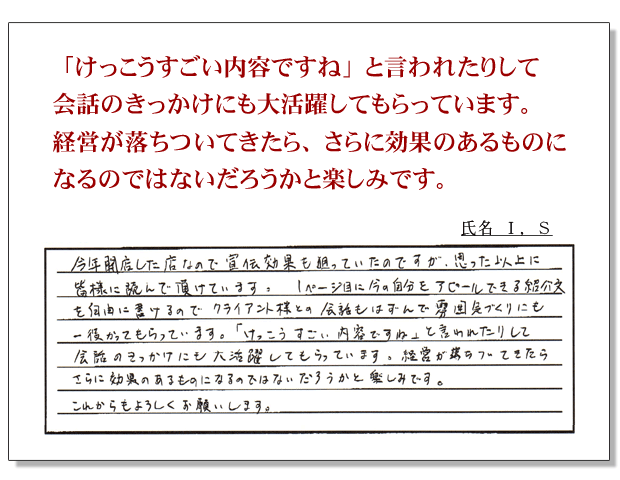 「けっこうすごい内容ですね」と言われたりして
会話のきっかけにも大活躍してもらっています。
経営が落ちついてきたら、さらに効果のあるものに
なるのではないだろうかと楽しみです。
氏名 I，S
今年開店した店なので宣伝効果も狙っていたのですが、思った以上に
皆様に読んで頂けています。 1ページ目に今の自分をアピールできる紹介文
を自由に書けるのでクライアント様との会話もはずんで雰囲気づくりにも
一役かってもらっています。「けっこうすごい内容ですね」と言われたりして
会話のきっかけにも大活躍してもらっています。経営が落ちついてきたら
さらに効果のあるものになるのではないだろうかと楽しみです。
これからもよろしくお願いします。